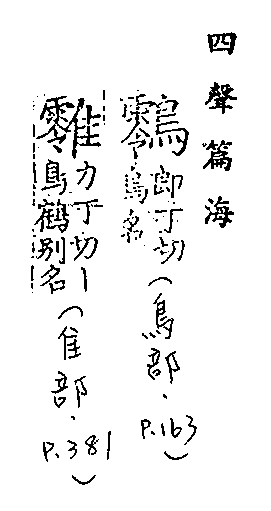 四聲篇海
郎丁切
鳥名
(鳥部.P.163)
力丁切丨
鳥鶴別名
(隹部.P.381)